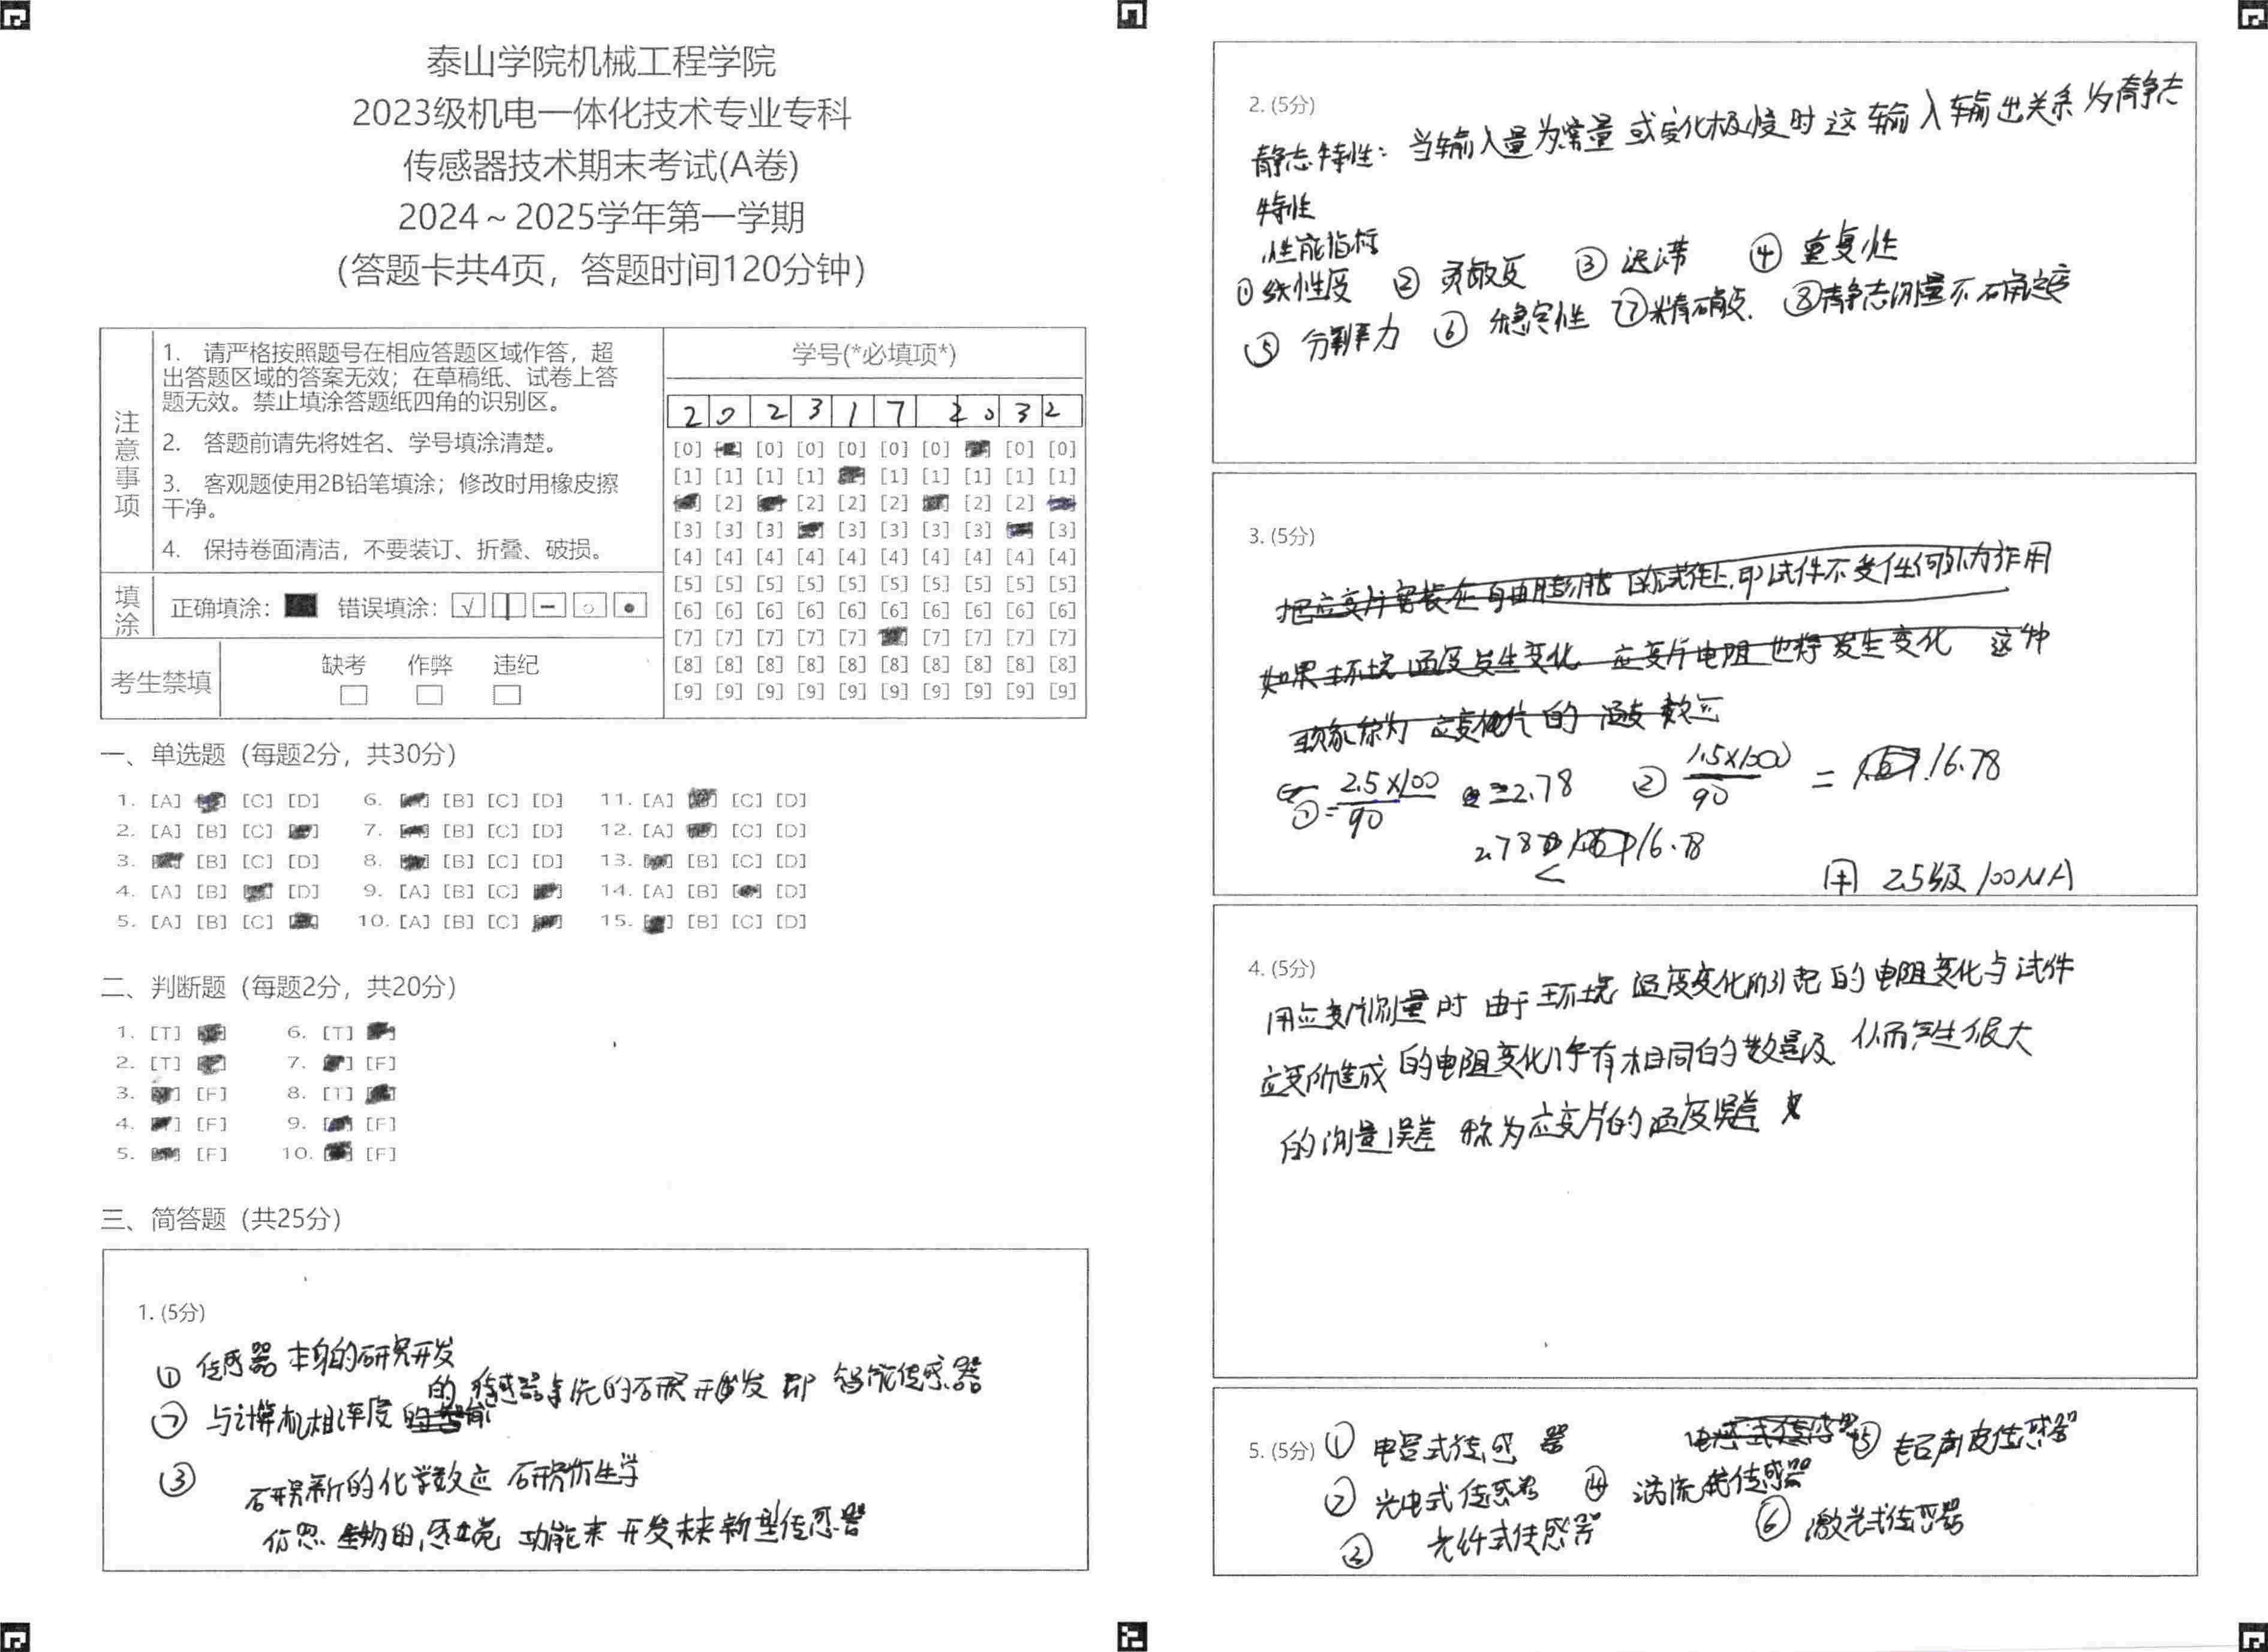 泰山学院机械工程学院
2023级机电一体化技术专业专科
传感器技术期末考试(A卷)
2024～2025学年第一学期
（答题卡共4页，答题时间120分钟）
注意事项
1. 请严格按照题号在相应答题区域作答，超
出答题区域的答案无效；在草稿纸、试卷上答
题无效。禁止填涂答题纸四角的识别区。
2. 答题前请先将姓名、学号填涂清楚。
3. 客观题使用2B铅笔填涂；修改时用橡皮擦
干净。
4. 保持卷面清洁，不要装订、折叠、破损。
填涂
正确填涂： 错误填涂：
考生禁填
缺考 作弊 违纪
学号(*必填项*)
2 0 2 3 1 7 2 0 3 2
[0] [0] [0] [0] [0] [0] [0] [0]
[1] [1] [1] [1] [1] [1] [1] [1] [1]
[2] [2] [2] [2] [2] [2]
[3] [3] [3] [3] [3] [3] [3] [3]
[4] [4] [4] [4] [4] [4] [4] [4] [4] [4]
[5] [5] [5] [5] [5] [5] [5] [5] [5] [5]
[6] [6] [6] [6] [6] [6] [6] [6] [6] [6]
[7] [7] [7] [7] [7] [7] [7] [7] [7]
[8] [8] [8] [8] [8] [8] [8] [8] [8] [8]
[9] [9] [9] [9] [9] [9] [9] [9] [9] [9]
一、单选题（每题2分，共30分）
1. [A] [C] [D] 6. [B] [C] [D] 11. [A] [C] [D]
2. [A] [B] [C] 7. [B] [C] [D] 12. [A] [C] [D]
3. [B] [C] [D] 8. [B] [C] [D] 13. [B] [C] [D]
4. [A] [B] [D] 9. [A] [B] [C] 14. [A] [B] [D]
5. [A] [B] [C] 10. [A] [B] [C] 15. [B] [C] [D]
二、判断题（每题2分，共20分）
1. [T] 6. [T]
2. [T] 7. [F]
3. [F] 8. [T]
4. [F] 9. [F]
5. [F] 10. [F]
三、简答题（共25分）
1. (5分)
① 传感器本身的研究开发
② 与计算机相连度的传感器系统的研究开发 即 智能传感器
③ 研究新的化学效应 研究仿生学
仿照生物的感觉功能来开发未来新型传感器
2. (5分)
静态特性：当输入量为常量或变化极慢时这输入输出关系为静态
特性
性能指标
① 线性度 ② 灵敏度 ③ 迟滞 ④ 重复性
⑤ 分辨力 ⑥ 稳定性 ⑦ 精确度. ⑧ 静态测量不确定度
3. (5分)
把应变片安装在自由膨胀的试件上,即试件不受任何外力作用
如果环境温度发生变化 应变片电阻也将发生变化 这种
现象称为 应变片的 温度效应
①= 2.5×100/90 =2.78 ② 1.5×1000/90 = 16.78
2.78 < 16.78
用 2.5级 100MA
4. (5分)
用应变片测量时 由于环境温度变化所引起的电阻变化与试件
应变所造成的电阻变化几乎有相同的数量级 从而产生很大
的测量误差 称为应变片的温度误差
5. (5分) ① 电容式传感器 电感式传感器 ⑤ 超声波传感器
② 光电式传感器 ④ 涡流式传感器
③ 光纤式传感器 ⑥ 激光式传感器